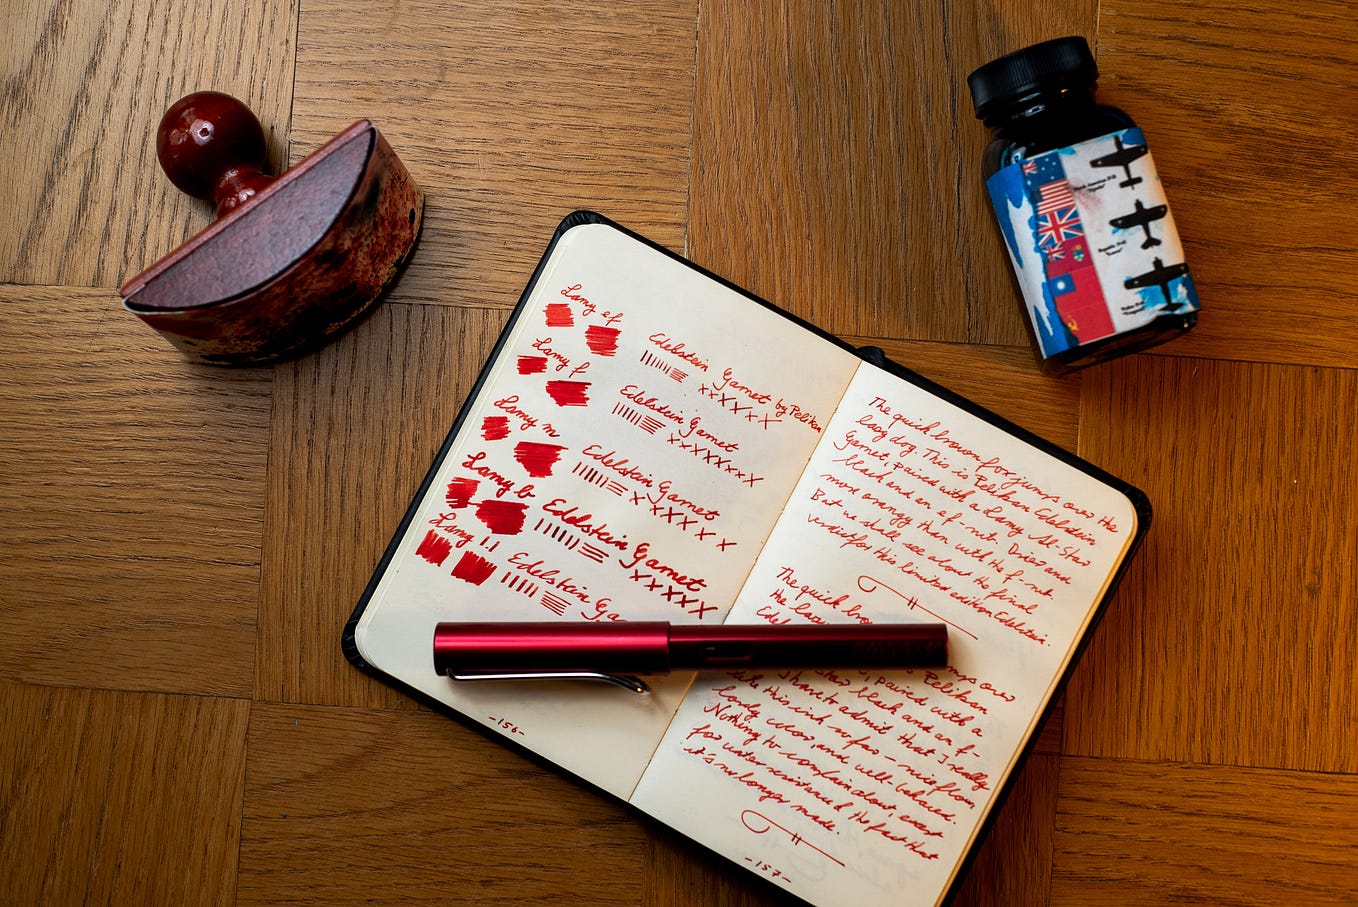 Lamy ef
Edelstein Garnet by Pelikan
Lamy f
Edelstein Garnet
Lamy m
Edelstein Garnet
Lamy b
Edelstein Garnet
Lamy 1.1
Edelstein Ga
-156-
The quick brown fox jumps over the
lazy dog. This is Pelikan Edelstein
Garnet, paired with a Lamy Al-Star
black and an ef-nib. Dries and
more orangy than with the f-nib.
But we shall see about the final
verdict for this limited edition Edelstein.
The quick bro
the lazy
Edel
mps over
Pelikan
paired with a
black and an f-
I have to admit that I really
like this ink so far - nice flow,
lovely color, and well-behaved.
Nothing to complain about, except
for water resistance & the fact that
it's no longer made.
-157-